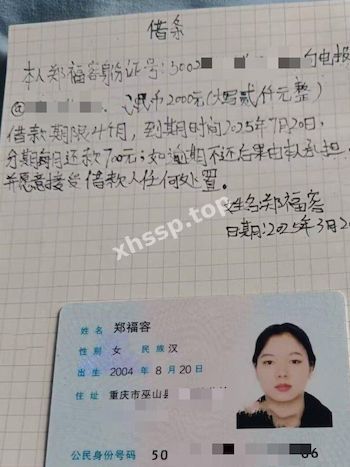 借条
本人郑福容身份证号:5002
人民币2000元(大写贰仟元整)
借款期限4个月,到期时间2025年7月20日,
分期每月还款700元;如逾期不还后果由本人承担
并愿意接受借款人任何处置。
姓名:郑福容
日期:2025年3月20
xhssp.top
姓名 郑福容
性别 女 民族 汉
出生 2004 年 8 月 20 日
住址 重庆市巫山县
公民身份号码 50 86